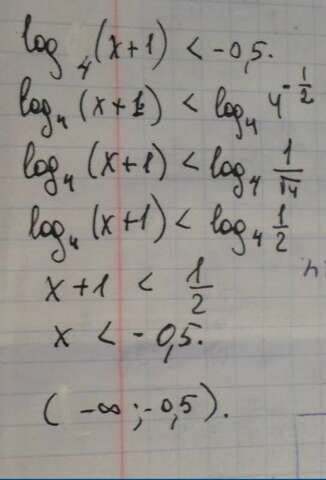 log₄(x+1) < -0,5.
log₄(x+1) < log₄ 4^(-1/2)
log₄(x+1) < log₄ 1/√4
log₄(x+1) < log₄ 1/2
x+1 < 1/2
x < -0,5.
(-∞;-0,5).